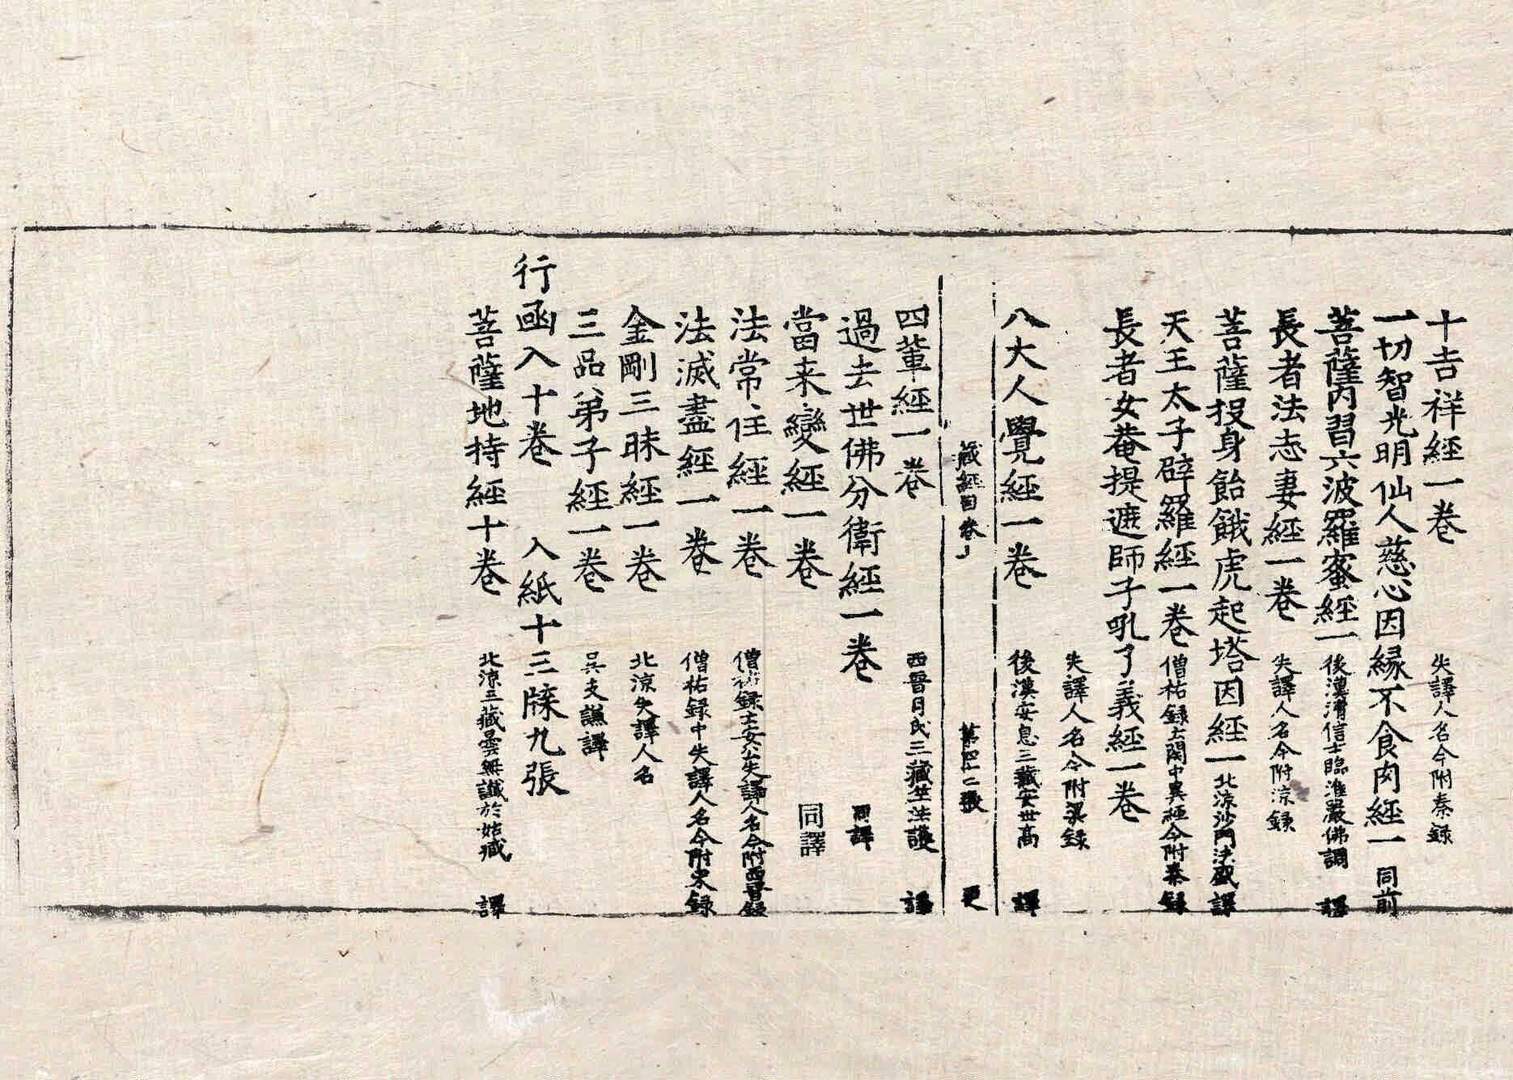 十吉祥經一卷 失譯人名今附秦録
一切智光明仙人慈心因縁不食肉經一 同前
菩薩内習六波羅蜜經一 後漢清信士臨淮嚴佛調 譯
長者法志妻經一卷 失譯人名今附涼録
菩薩投身飴餓虎起塔因經一 北涼沙門法盛譯
天王太子辟羅經一卷 僧祐録云關中異經今附秦録
長者女菴提遮師子吼了義經一卷
失譯人名今附梁録
八大人覺經一卷 後漢安息三藏安世高 譯
藏經目卷 第四十二張 更
四輩經一卷 西晉月氏三藏竺法護 譯
過去世佛分衛經一卷 同譯
當来變經一卷 同譯
法常住經一卷 僧祐録云安公失譯人名今附西晉録
法滅盡經一卷 僧祐録中失譯人名今附宋録
金剛三昧經一卷 北涼失譯人名
三品弟子經一卷 呉支謙譯
行函入十卷 入紙十三牒九張
菩薩地持經十卷 北涼三藏曇無讖於姑臧 譯